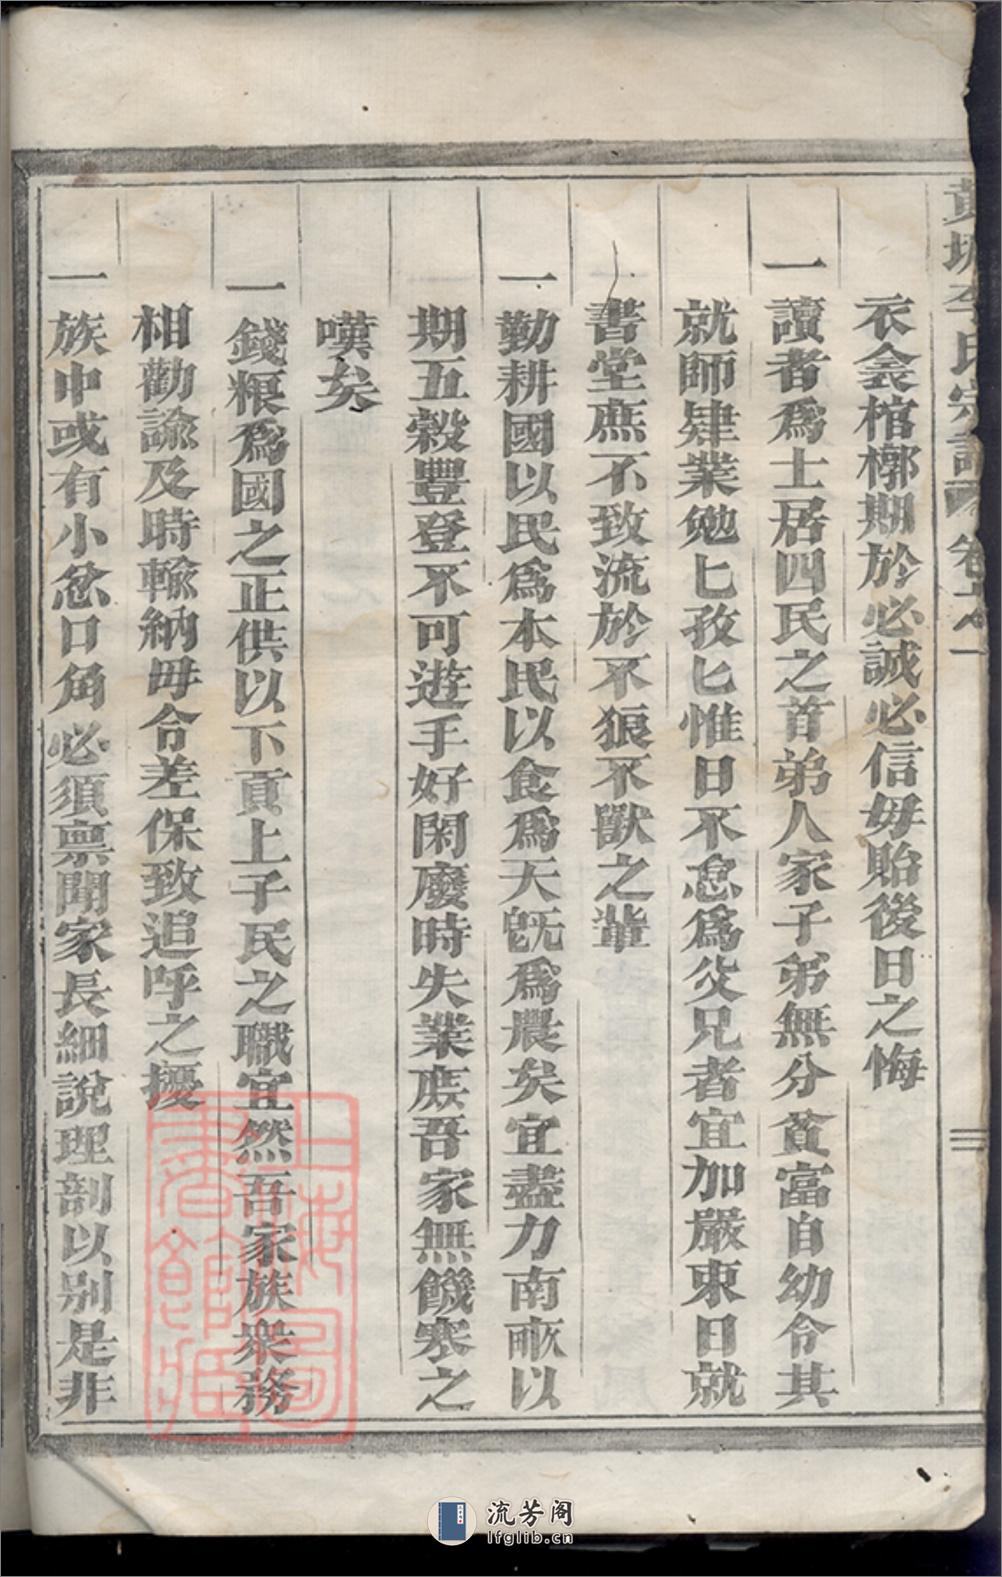 黃坡李氏宗譜 卷之一
衣衾棺槨期於必誠必信毋貽後日之悔
一讀者爲士居四民之首弟人家子弟無分貧富自幼令其
就師肄業勉匕孜匕惟日不怠爲父兄者宜加嚴束日就
書堂庶不致流於不狼不獸之輩
一勤耕國以民爲本民以食爲天旣爲農矣宜盡力南畝以
期五穀豐登不可遊手好閑廢時失業庶吾家無饑寒之
嘆矣
一錢粮爲國之正供以下貢上子民之職宜然吾家族衆務
相勸諭及時輸納毋令差保致追呼之擾
一族中或有小忿口角必須禀聞家長細說理剖以别是非
上海圖書館藏
流芳阁
lfglib.cn